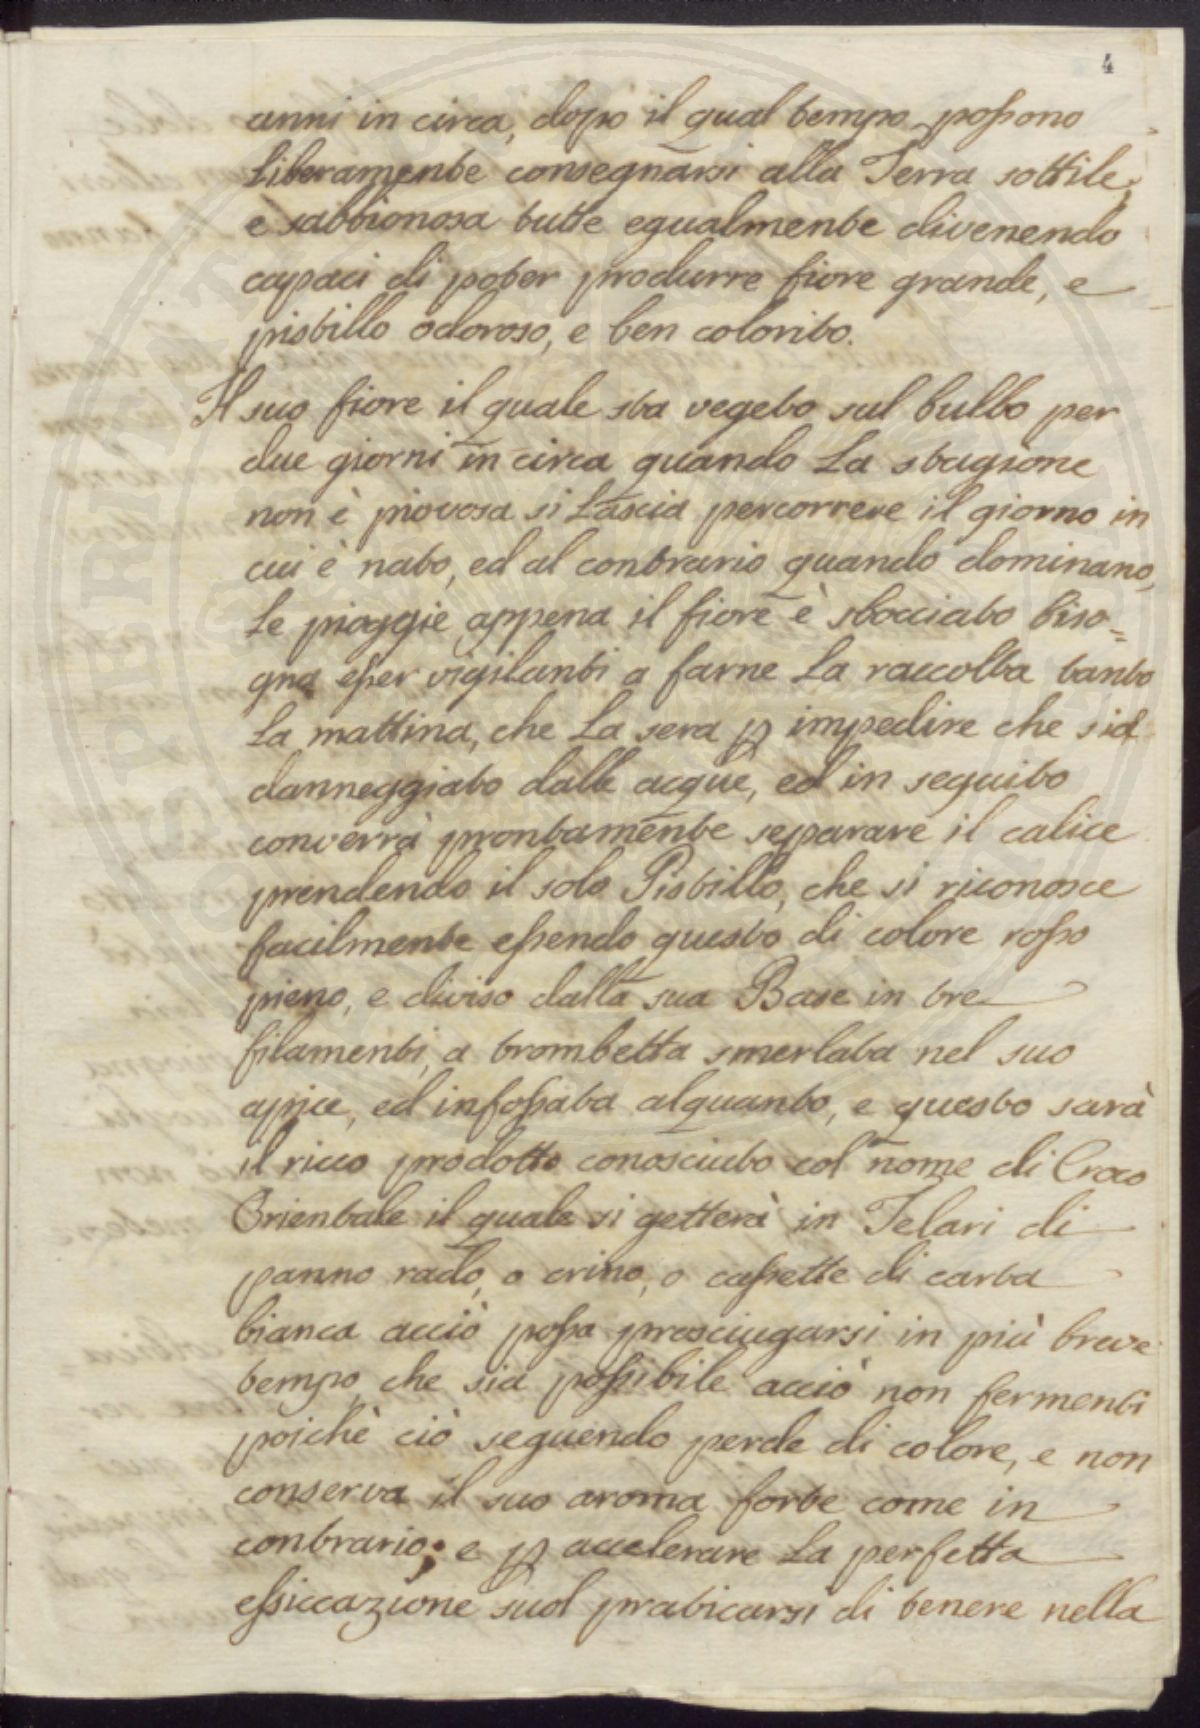 4
anni in circa, dopo il qual tempo possono
liberamente consegnarsi alla Terra sottile,
e sabbionosa tutte egualmente divenendo
capaci di poter produrre fiore grande, e
pistillo odoroso, e ben colorito.
Il suo fiore il quale sta vegeto sul bulbo per
due giorni in circa quando la stagione
non è piovosa si lascia percorrere il giorno in
cui è nato, ed al contrario quando dominano
le pioggie appena il fiore è sbocciato biso=
gna esser vigilanti a farne la raccolta tanto
la mattina, che la sera p impedire che sia
danneggiato dalle acque, ed in seguito
converrà prontamente separare il calice
prendendo il solo Pistillo, che si riconosce
facilmente essendo questo di colore rosso
pieno, e diviso dalla sua Base in tre
filamenti, a trombetta smerlata nel suo
apice, ed infossata alquanto, e questo sarà
il ricco prodotto conosciuto col nome di Croco
Orientale il quale si getterà in Telari di
panno rado, o crino, o cassette di carta
bianca acciò possa prosciugarsi in più breve
tempo, che sia possibile acciò non fermenti
poichè ciò seguendo perde di colore, e non
conserva il suo aroma forte come in
contrario; e p accelerare la perfetta
essiccazione suol praticarsi di tenere nella